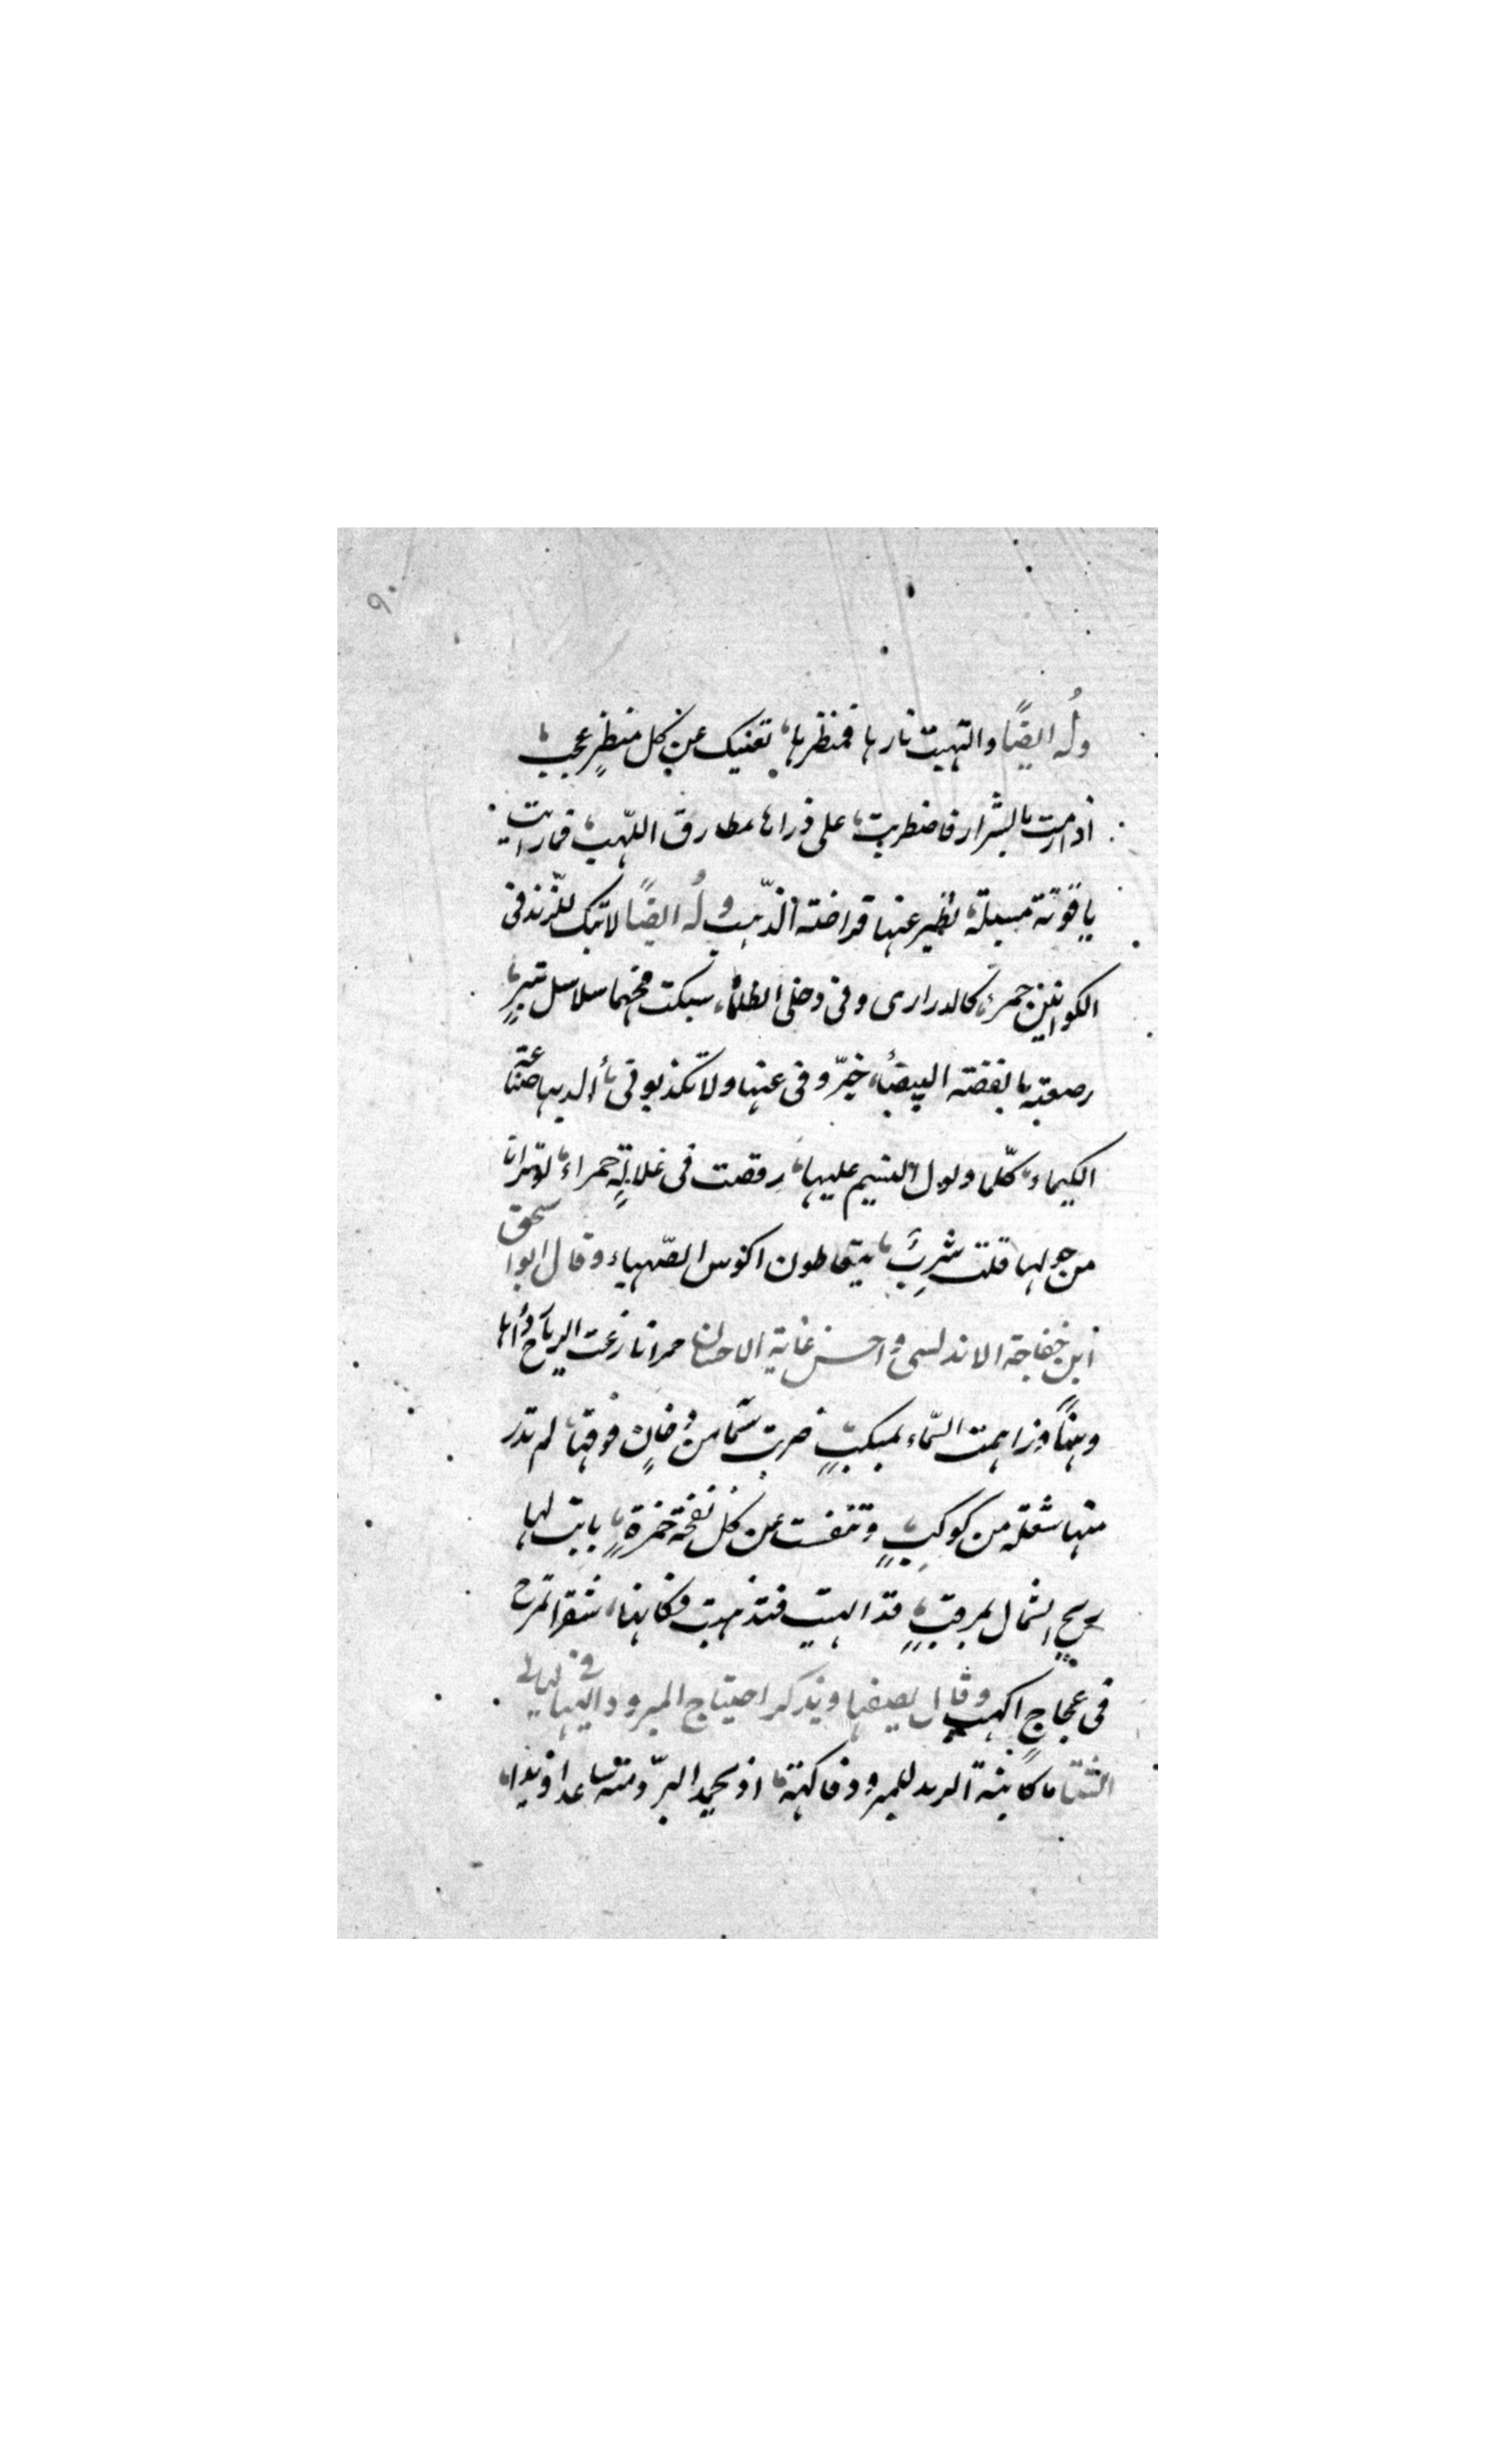 ٩٠
وله ايضًا والتهبت نارها فمنظرها، تغنيك عن كل منظرٍ عجب،
اذا رمت بالشرار فاضطربت، على ذراها مطارق اللهب، فما رايت
ياقوتة مسبلة، تطير عنها قراضته الذّهب وله ايضًا لابنك للزند فى
الكوانين جمر، كالدرارى وفى دخى الظلماء، سبكت فحمها سلاسل تبرٍ،
رصعته بالفضته البيضاء، خبّروفى عنها ولا تكذبوفى، ألديها صناعة
الكيماء، كلّما ولول النسيم عليها، رقصت فى غلالةٍ حمراء، لو ترانا
من حولها قلت شربَ، يتعاطون اكوس الصّهباء وقال ابو اسحق
ابن خفاجة الاندلسى واحسن غاية الاحسان حمرا نازعت الرياح رداها
وهنًا وزاحمت السّماء بمنكبٍ، ضربت سّما من دخانٍ فوقها، لم تدر
منها شعلة من كوكبٍ، وتنفست عن كل نفحة خمرةٍ، باتت لها
ريح الشمال بمرقبٍ، قد الهبت فتذهبت فكانها، شقرا تمرح
فى عجاجٍ اكهب وقال يصفها ويذكر احتياج المبرود اليها فى ليالى
الشتا ما كابنة الزند للمبرود فاكهة، اذ يحمد البرّد منه ساعدا ويدا،